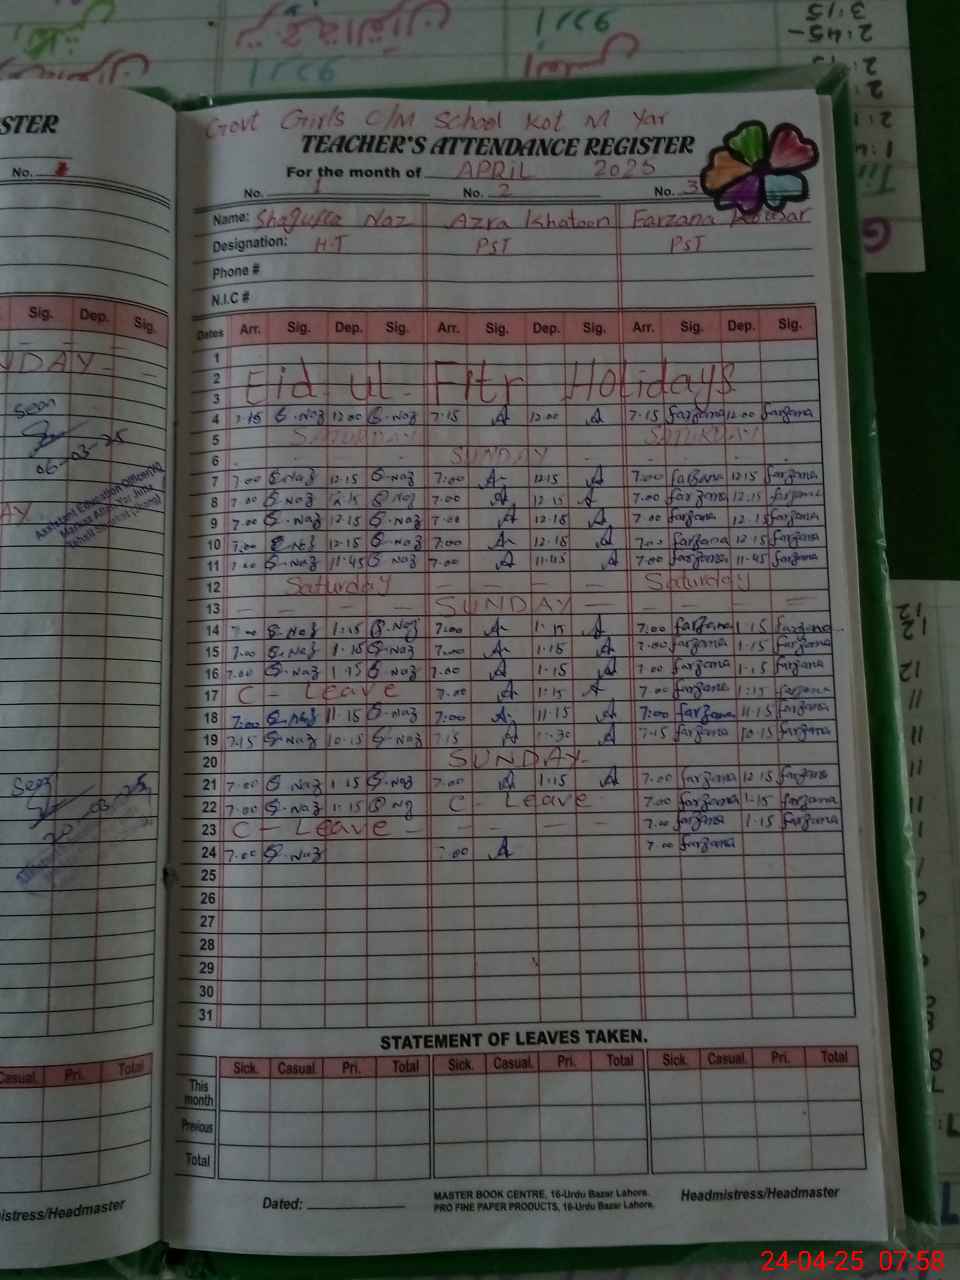 STER
No.
Sig. Dep. Sig.
NDAY
Seen
06-03-25
Assistant Education Officer
Seen
20-03-25
Casual. Pri. Total
istress/Headmaster
Govt Girls C/M School Kot M Yar
TEACHER'S ATTENDANCE REGISTER
For the month of APRIL 2025
No. 1 No. 2 No. 3
Name: Shagufta Naz Azra Khatoon Farzana Kousar
Designation: H.T PST PST
Phone #
N.I.C #
Dates Arr. Sig. Dep. Sig. Arr. Sig. Dep. Sig. Arr. Sig. Dep. Sig.
1
2 Eid ul Fitr Holidays
3
4 7.15 S.Naz 12.00 S.Naz 7.15 A 12.00 A 7.15 farzana 12.00 farzana
5 SATURDAY SATURDAY
6 SUNDAY
7 7.00 S.Naz 12.15 S.Naz 7.00 A 12.15 A 7.00 farzana 12.15 farzana
8 7.00 S.Naz 12.15 S.Naz 7.00 A 12.15 A 7.00 farzana 12.15 farzana
9 7.00 S.Naz 12.15 S.Naz 7.00 A 12.15 A 7.00 farzana 12.15 farzana
10 7.00 S.Naz 12.15 S.Naz 7.00 A 12.15 A 7.00 farzana 12.15 farzana
11 7.00 S.Naz 11.45 S.Naz 7.00 A 11.45 A 7.00 farzana 11.45 farzana
12 Saturday — — — — Saturday
13 — — — — SUNDAY — — — — —
14 7.00 S.Naz 1.15 S.Naz 7.00 A 1.15 A 7.00 farzana 1.15 farzana
15 7.00 S.Naz 1.15 S.Naz 7.00 A 1.15 A 7.00 farzana 1.15 farzana
16 7.00 S.Naz 1.15 S.Naz 7.00 A 1.15 A 7.00 farzana 1.15 farzana
17 C - Leave 7.00 A 1.15 A 7.00 farzana 1.15 farzana
18 7:00 S.Naz 11.15 S.Naz 7:00 A 11.15 A 7:00 farzana 11.15 farzana
19 7.15 S.Naz 10.15 S.Naz 7.15 A A 7.15 farzana 10.15 farzana
20 SUNDAY
21 7.00 S.Naz 1.15 S.Naz 7.00 A 1.15 A 7.00 farzana 12.15 farzana
22 7.00 S.Naz 1.15 S.Naz C - Leave 7.00 farzana 1.15 farzana
23 C - Leave - - - - - 7.00 farzana 1.15 farzana
24 7.00 S.Naz 7.00 A 7.00 farzana
25
26
27
28
29
30
31
STATEMENT OF LEAVES TAKEN.
Sick. Casual. Pri. Total Sick. Casual. Pri. Total Sick. Casual. Pri. Total
This month
Previous
Total
Dated:
MASTER BOOK CENTRE, 16-Urdu Bazar Lahore.
PRO FINE PAPER PRODUCTS, 16-Urdu Bazar Lahore.
Headmistress/Headmaster
24-04-25 07:58